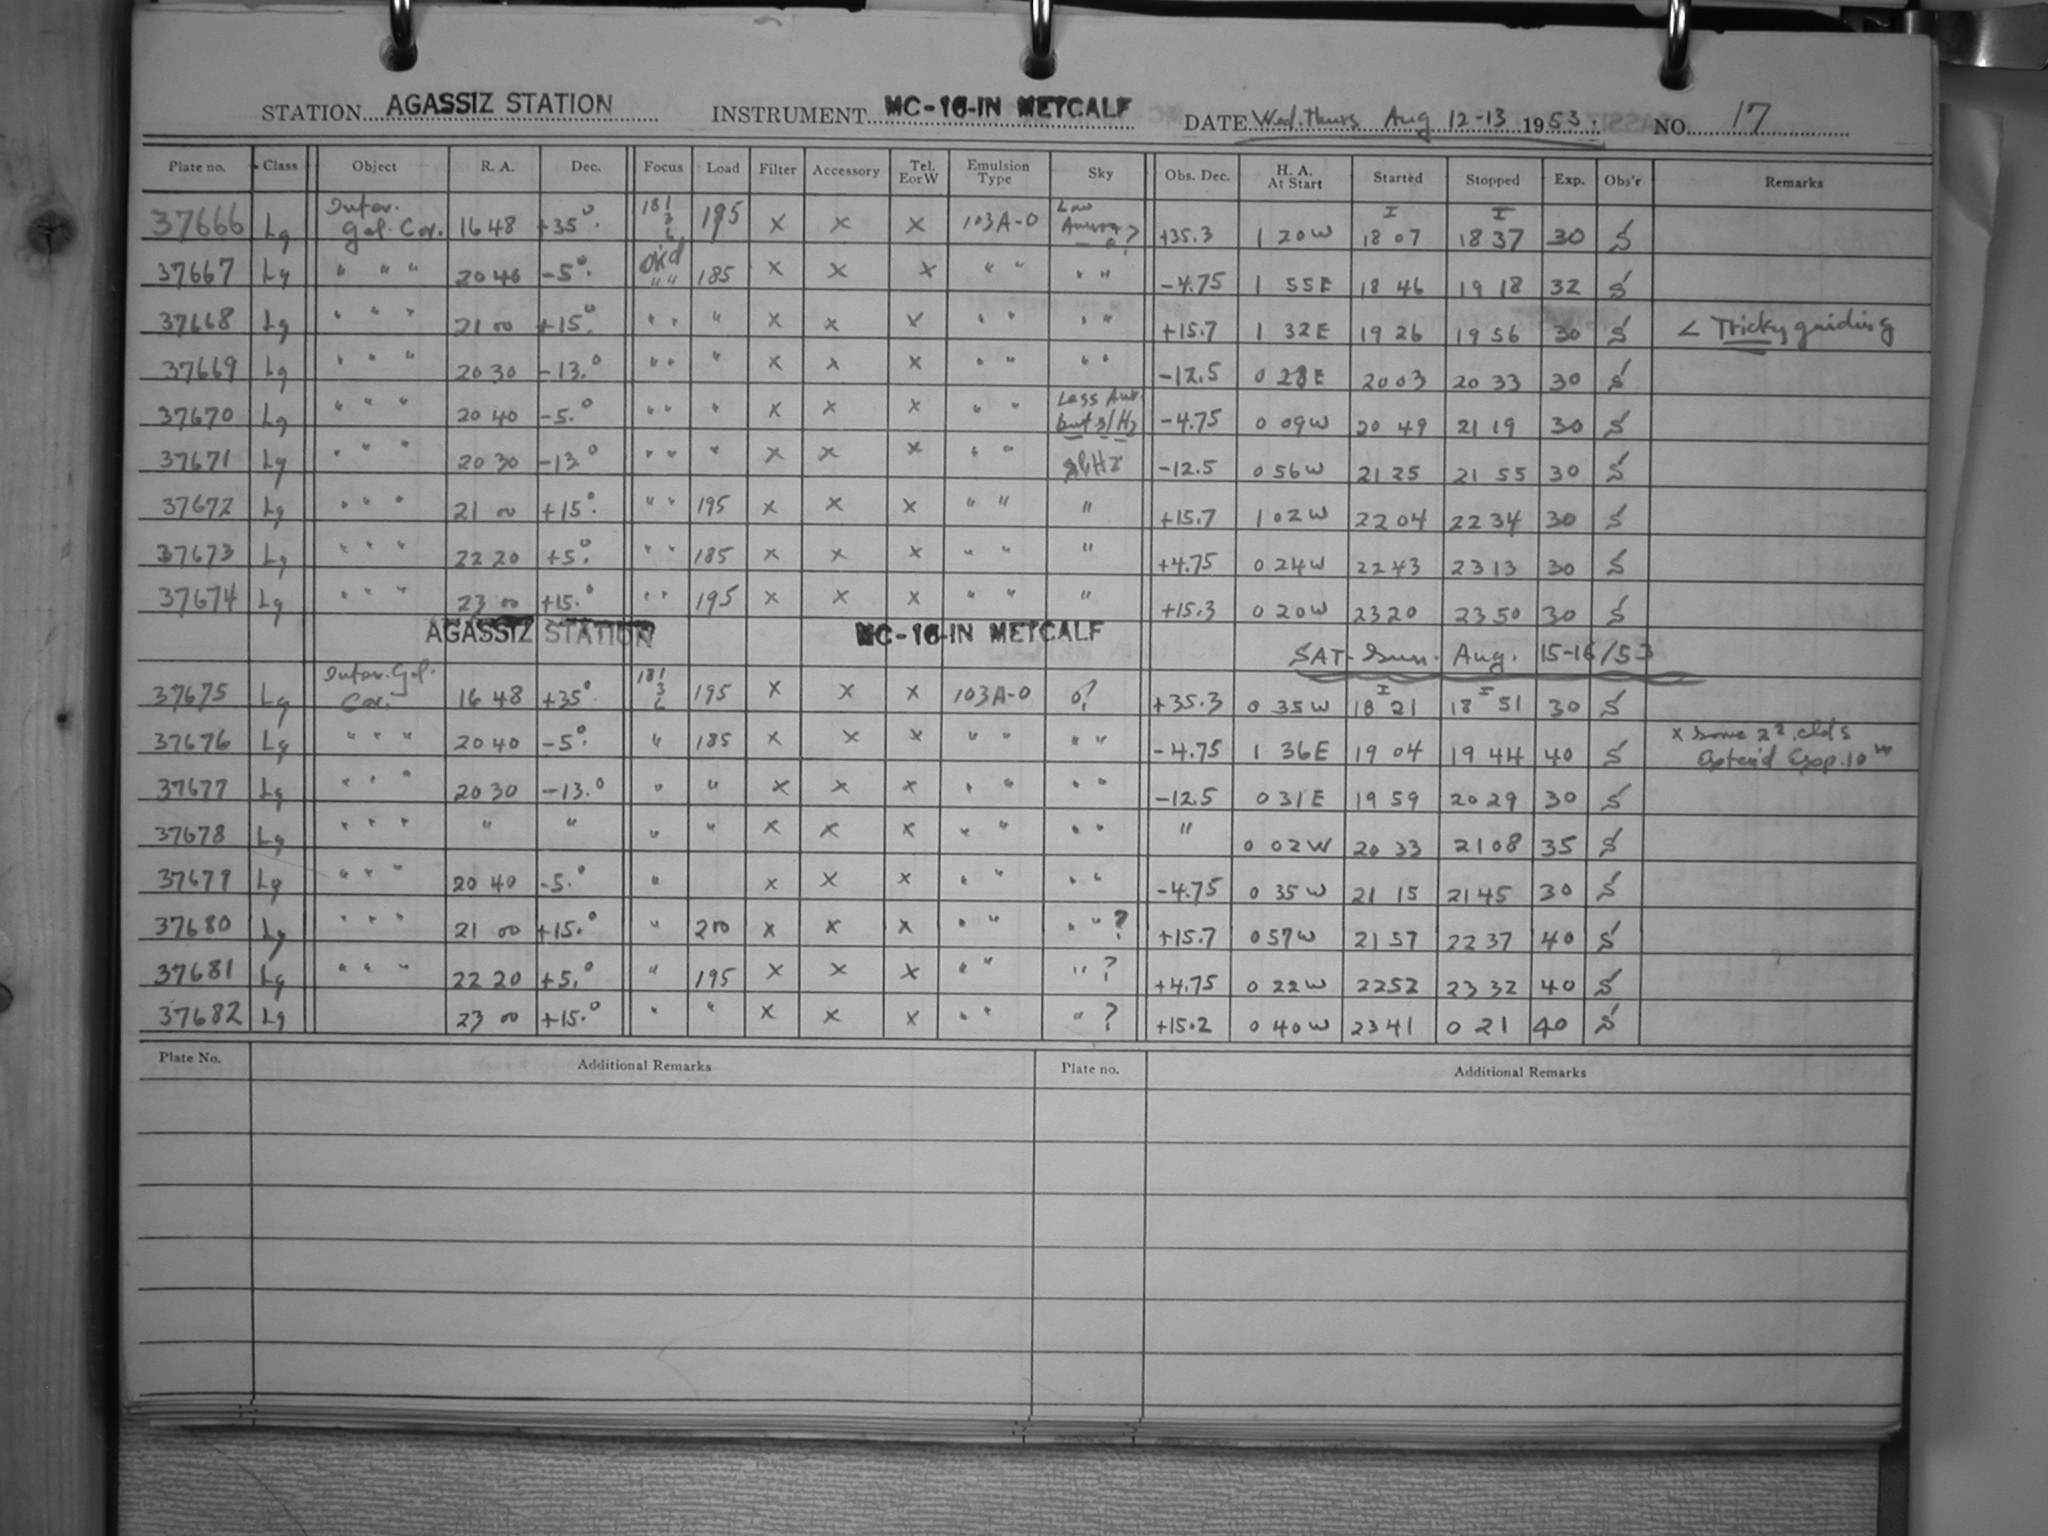 STATION AGASSIZ STATION INSTRUMENT MC-16-IN METCALF DATE Wed. Thurs Aug 12-13 1953. NO. 17
Plate no. Class Object R. A. Dec. Focus Load Filter Accessory Tel. E or W Emulsion Type Sky Obs. Dec. H. A. At Start Started Stopped Exp. Obs'r Remarks
37666 Lg Inter. Gal. Cor. 16 48 +35° 181 3 6 195 x x x 103A-O Low Aurora? +35.3 1 20W I 18 07 I 18 37 30 S
37667 Lg " " " 20 40 -5° ok'd " " 185 x x x " " " " -4.75 1 55E 18 46 19 18 32 S
37668 Lg " " " 21 00 +15° " " " x x x " " " " +15.7 1 32E 19 26 19 56 30 S < Tricky guiding
37669 Lg " " " 20 30 -13.° " " " x x x " " " " -12.5 0 28E 20 03 20 33 30 S
37670 Lg " " " 20 40 -5.° " " " x x x " " Less Aur. but sl Hz -4.75 0 09W 20 49 21 19 30 S
37671 Lg " " " 20 30 -13° " " " x x x " " sl Hz -12.5 0 56W 21 25 21 55 30 S
37672 Lg " " " 21 00 +15° " " 195 x x x " " " +15.7 1 02W 22 04 22 34 30 S
37673 Lg " " " 22 20 +5° " " 185 x x x " " " +4.75 0 24W 22 43 23 13 30 S
37674 Lg " " " 23 00 +15.° " " 195 x x x " " " +15.3 0 20W 23 20 23 50 30 S
AGASSIZ STATION MC-16-IN METCALF SAT-Sun. Aug. 15-16/53
37675 Lg Inter. Gal. Cor. 16 48 +35° 181 3 6 195 x x x 103A-O o? +35.3 0 35W I 18 21 I 18 51 30 S
37676 Lg " " " 20 40 -5° " 185 x x x " " " " -4.75 1 36E 19 04 19 44 40 S x some clds Exp. 10m
37677 Lg " " " 20 30 -13.° " " x x x " " " " -12.5 0 31E 19 59 20 29 30 S
37678 Lg " " " " " " " x x x " " " " " 0 02W 20 33 21 08 35 S
37679 Lg " " " 20 40 -5.° " x x x " " " " -4.75 0 35W 21 15 21 45 30 S
37680 Lg " " " 21 00 +15.° " 210 x x x " " " " ? +15.7 0 57W 21 57 22 37 40 S
37681 Lg " " " 22 20 +5.° " 195 x x x " " " ? +4.75 0 22W 22 52 23 32 40 S
37682 Lg 23 00 +15.° " " x x x " " " ? +15.2 0 40W 23 41 0 21 40 S
Plate No. Additional Remarks Plate no. Additional Remarks